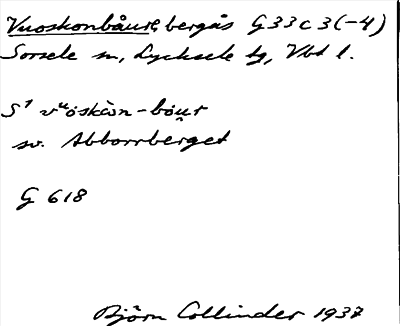 Vuoskonbåure, bergås G33c3(-4)
Sorsele sn, Lycksele tg, Vbt l.
S¹ vᵘöskòn-böu̯r
sv. Abborrberget
G 618
Björn Collinder 1937